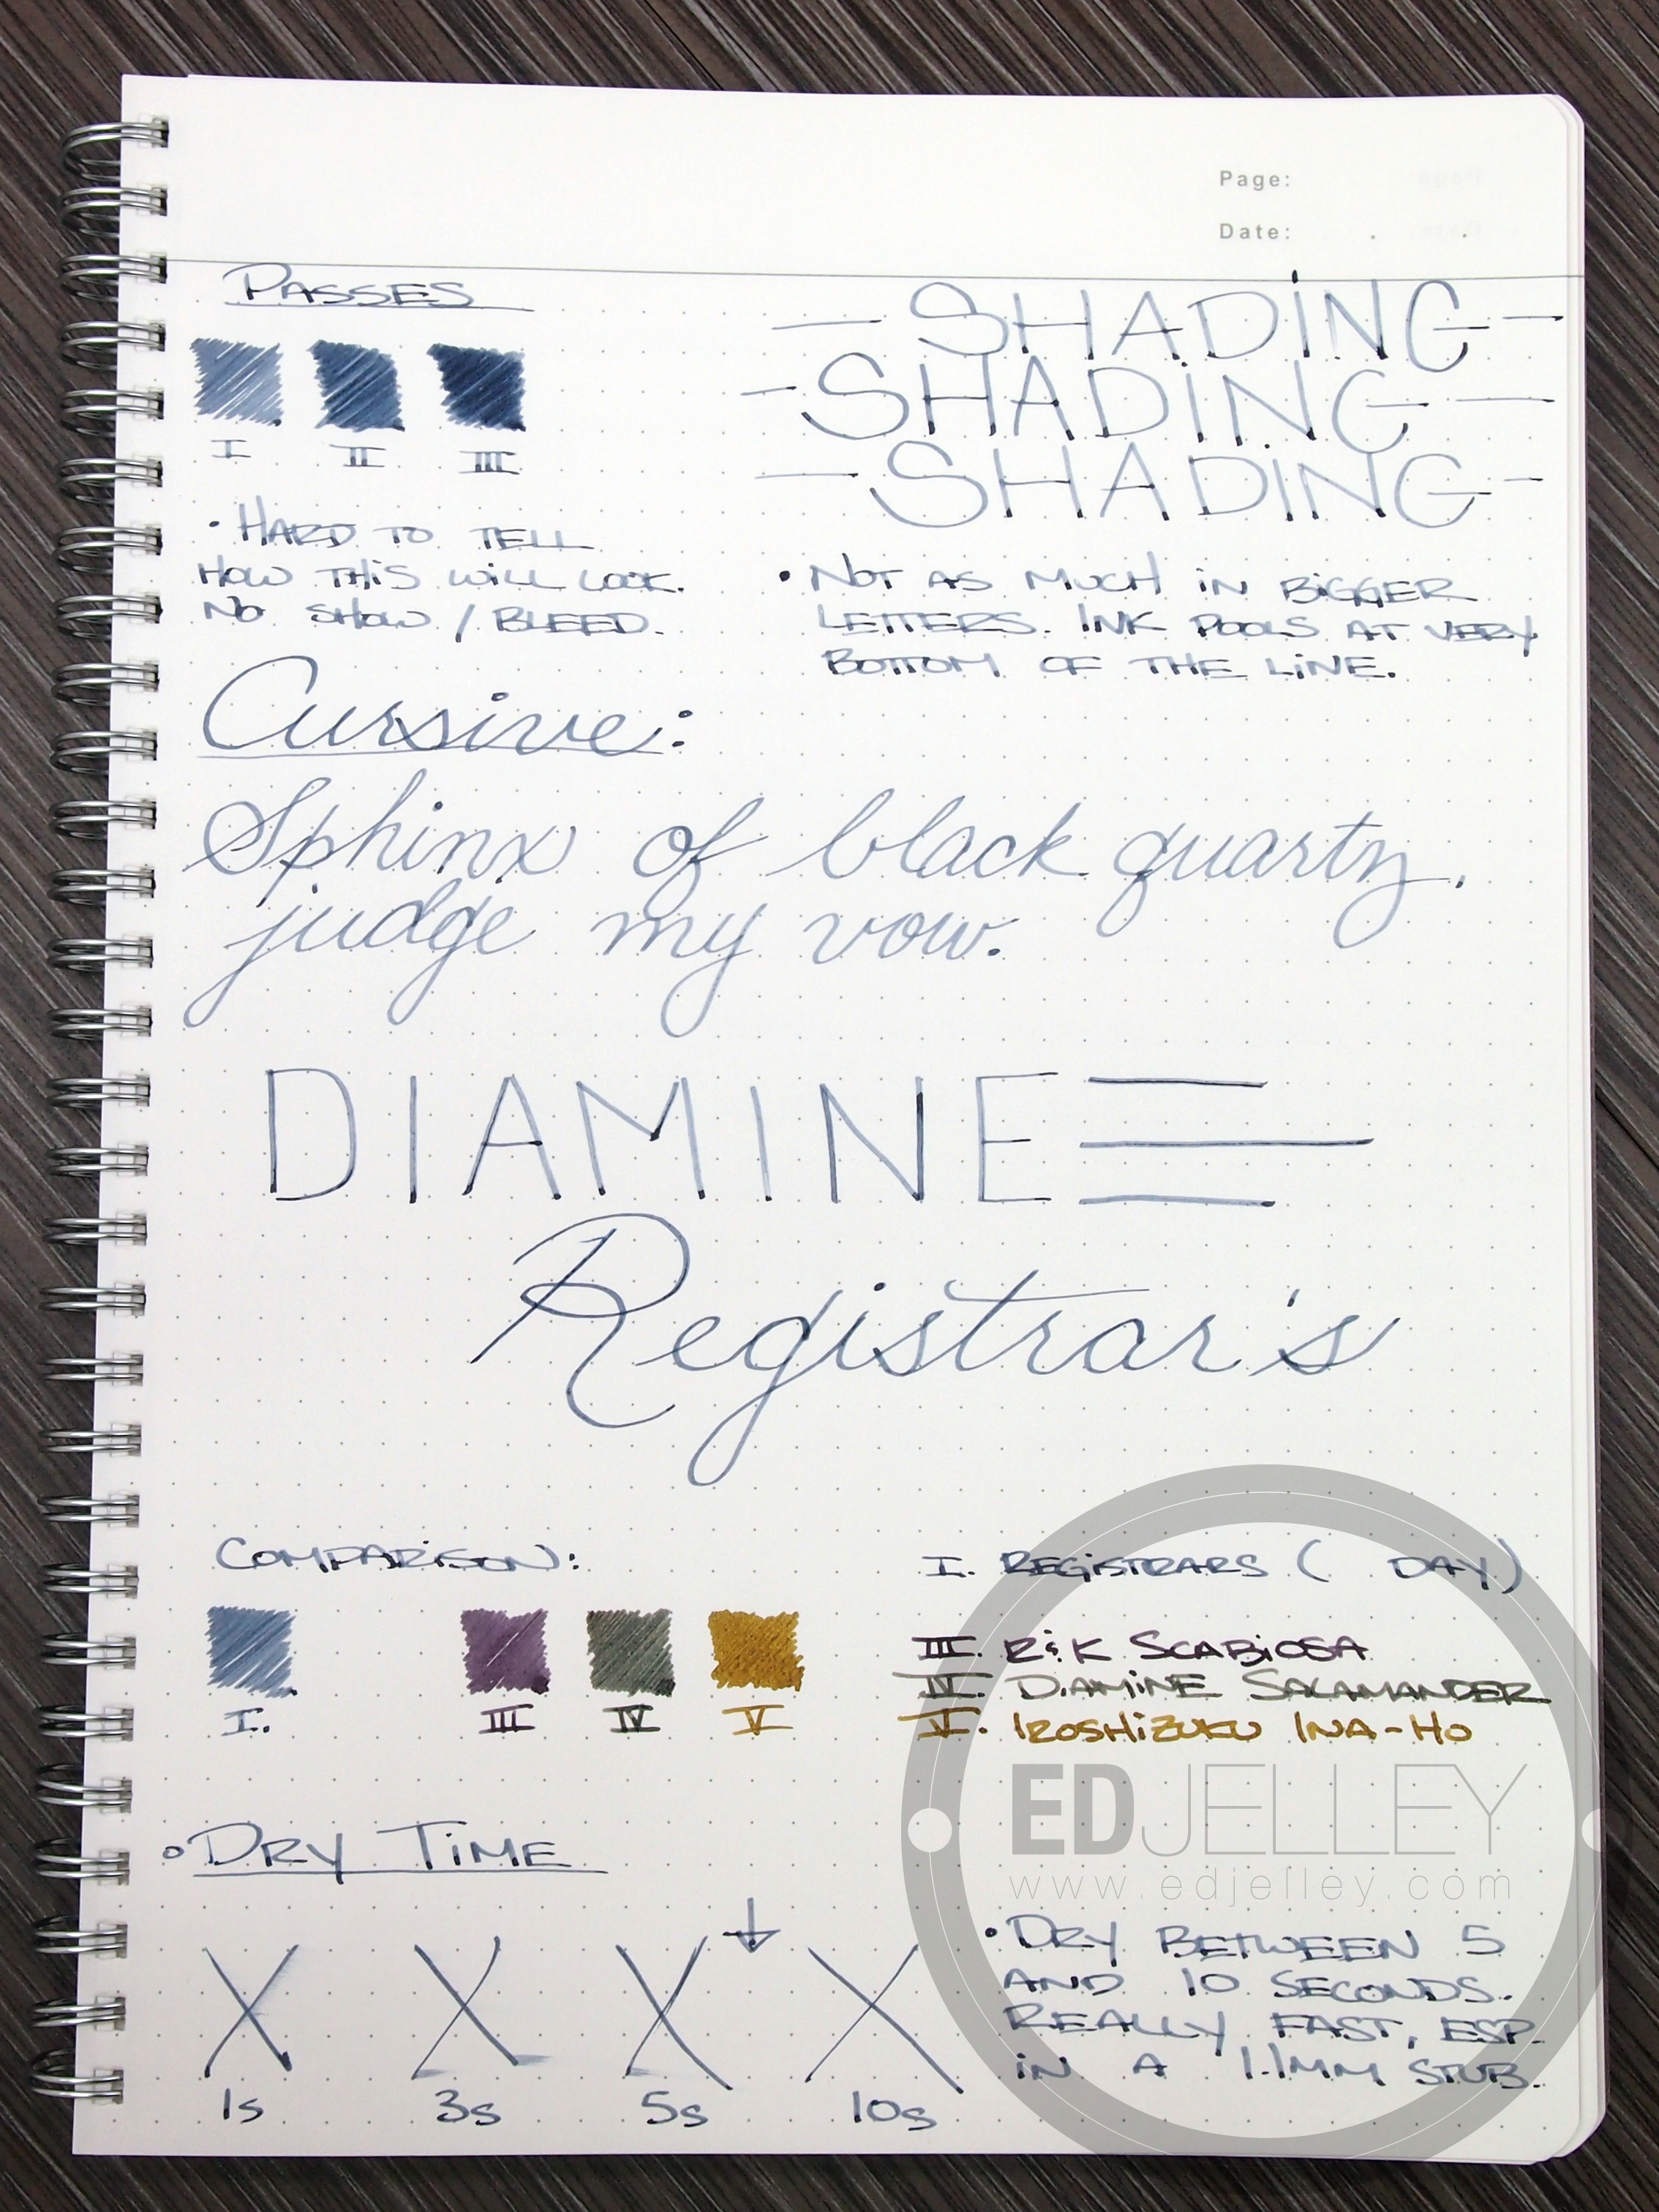 Page:
Date: . .
PASSES
I II III
• HARD TO TELL
HOW THIS WILL LOOK.
NO SHOW / BLEED.
— SHADING —
— SHADING —
— SHADING —
• NOT AS MUCH IN BIGGER
LETTERS. INK POOLS AT VERY
BOTTOM OF THE LINE.
Cursive:
Sphinx of black quartz,
judge my vow.
DIAMINE
Registrar's
COMPARISON:
I. III IV V
I. REGISTRARS ( DAY)
III. R&K SCABIOSA
IV. DIAMINE SALAMANDER
V. IROSHIZUKU INA-HO
EDJELLEY
www.edjelley.com
• DRY TIME
X X X ↓ X
1s 3s 5s 10s
• DRY BETWEEN 5
AND 10 SECONDS.
REALLY FAST, ESP.
IN A 1.1MM STUB.